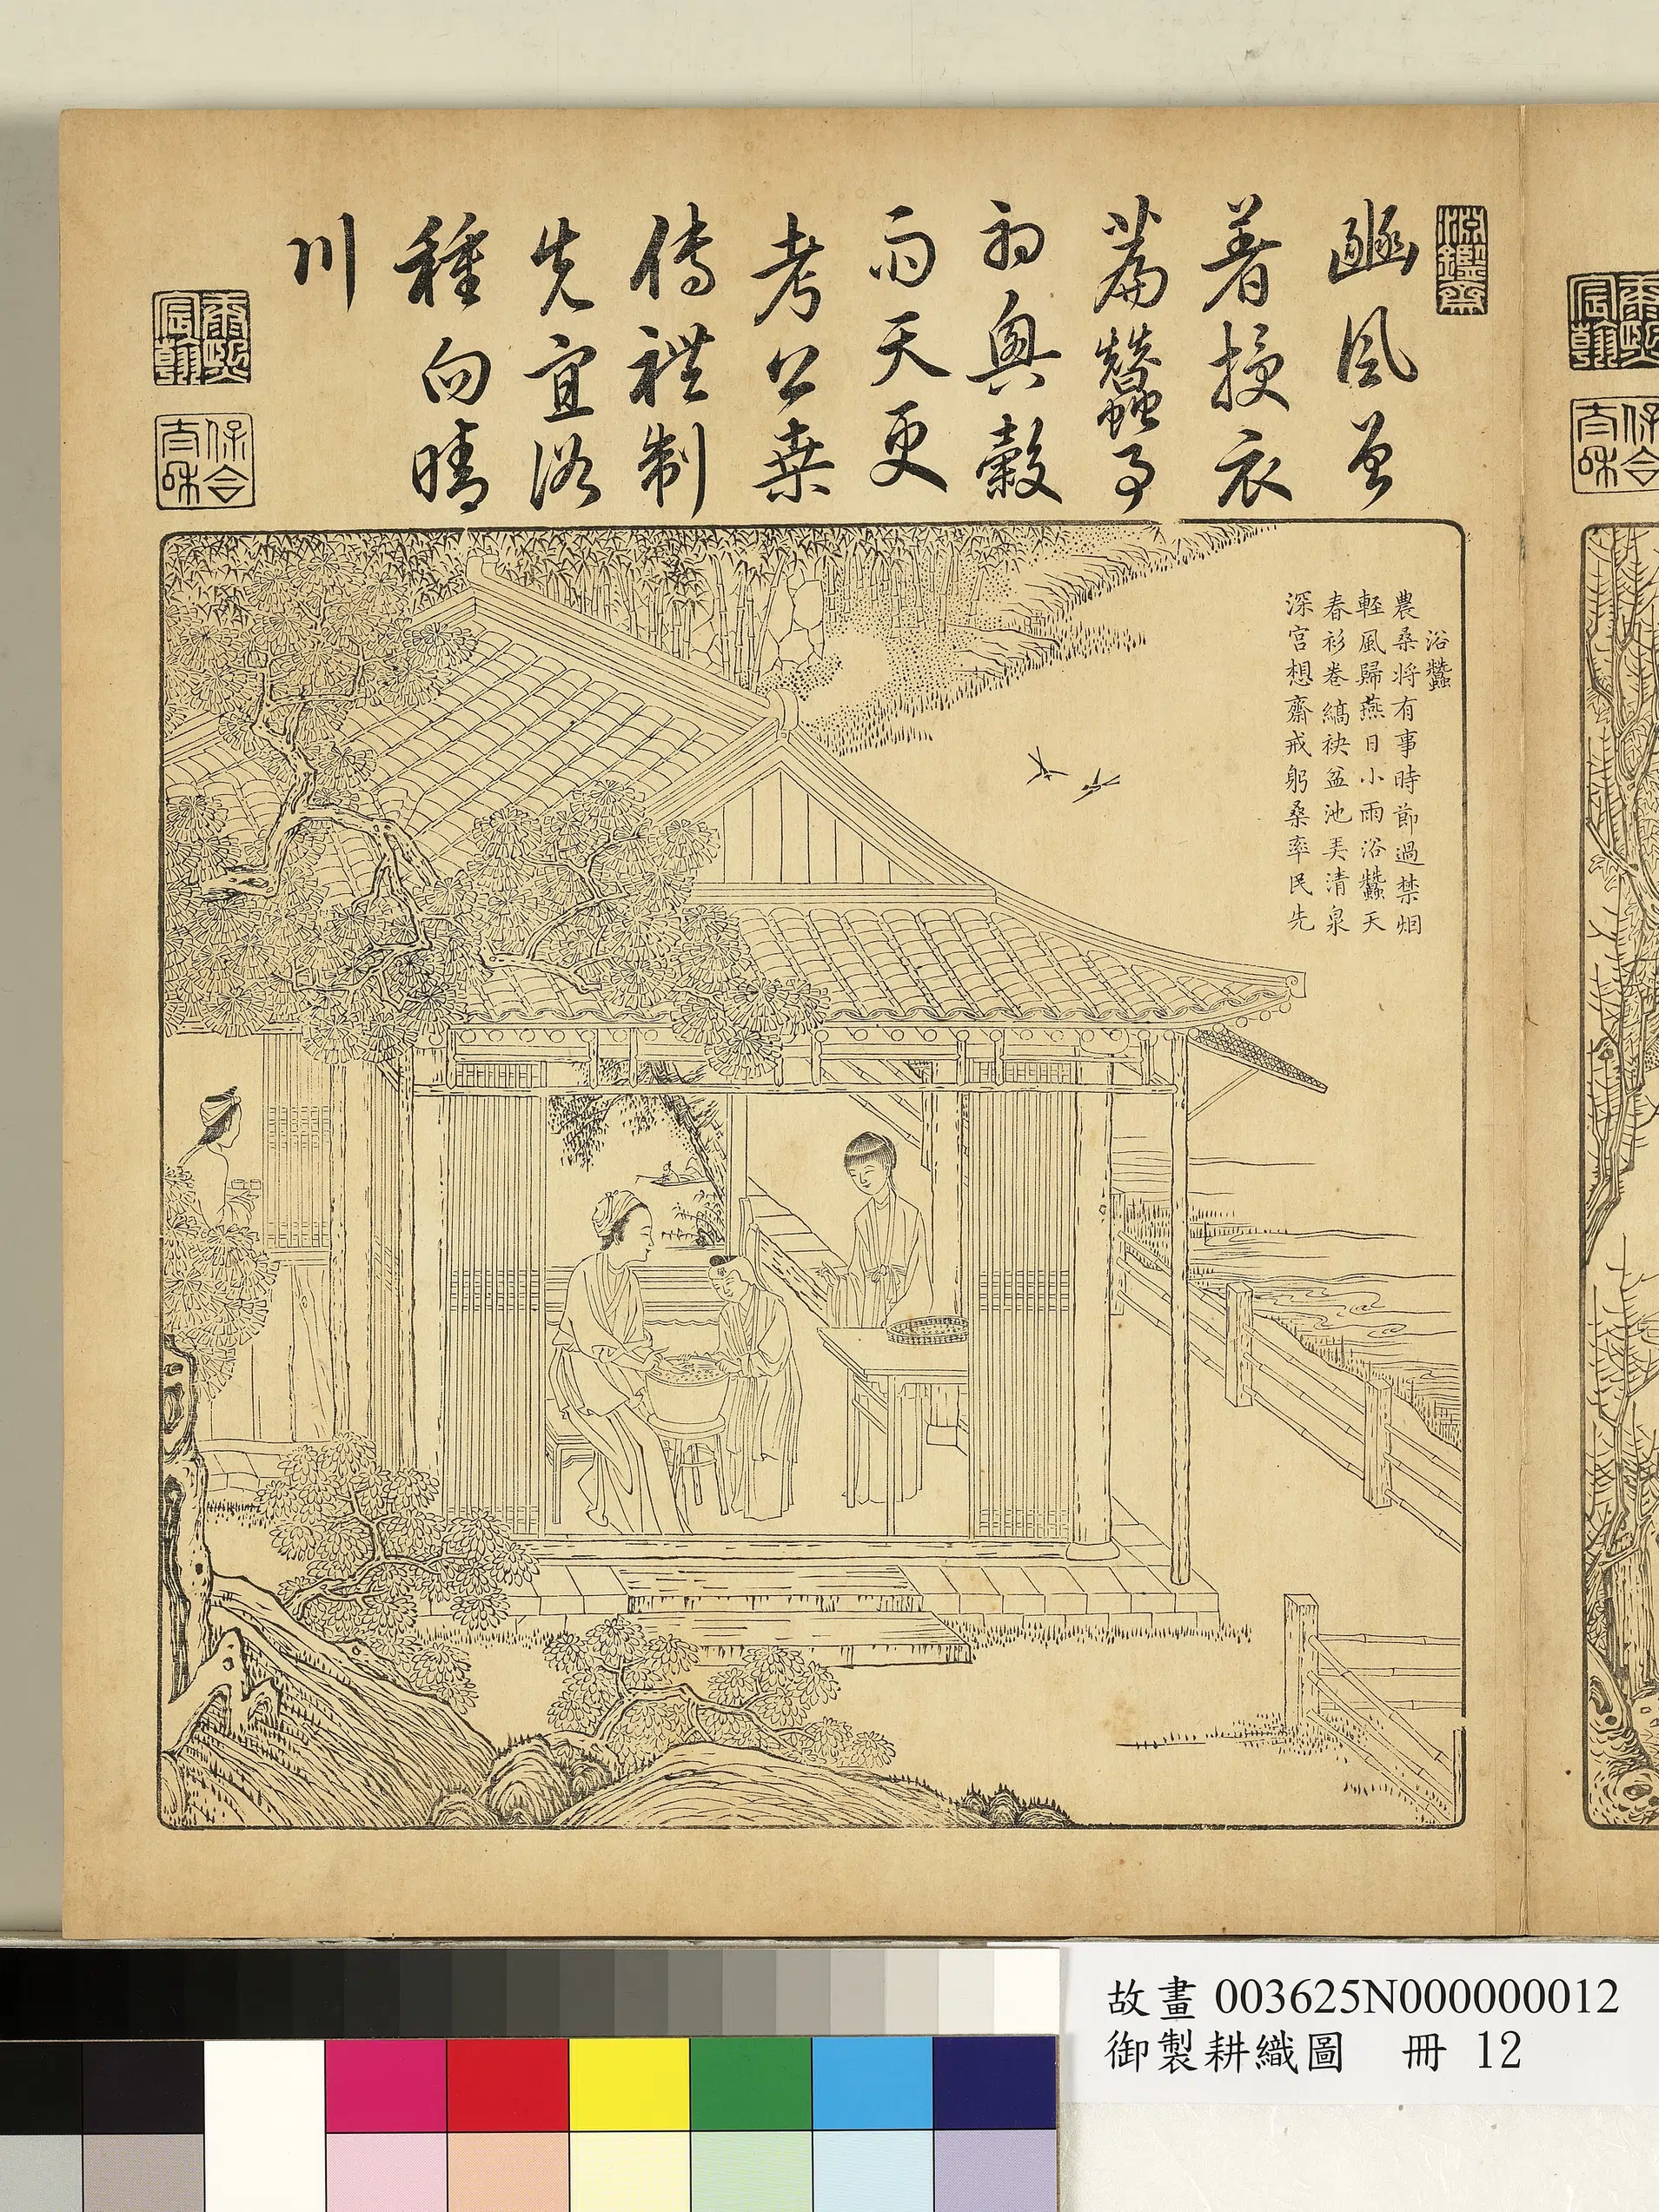 淵鑒齋
豳風曾
著授衣
篇蠶事
初興穀
雨天更
考公桑
傳禮制
先宜浴
種向晴
川
康熙宸翰
保合太和
浴蠶
農桑將有事時節過禁烟
輕風歸燕日小雨浴蠶天
春衫卷縞袂盆池弄清泉
深宮想齋戒躬桑率民先
故畫 003625N000000012
御製耕織圖 冊 12